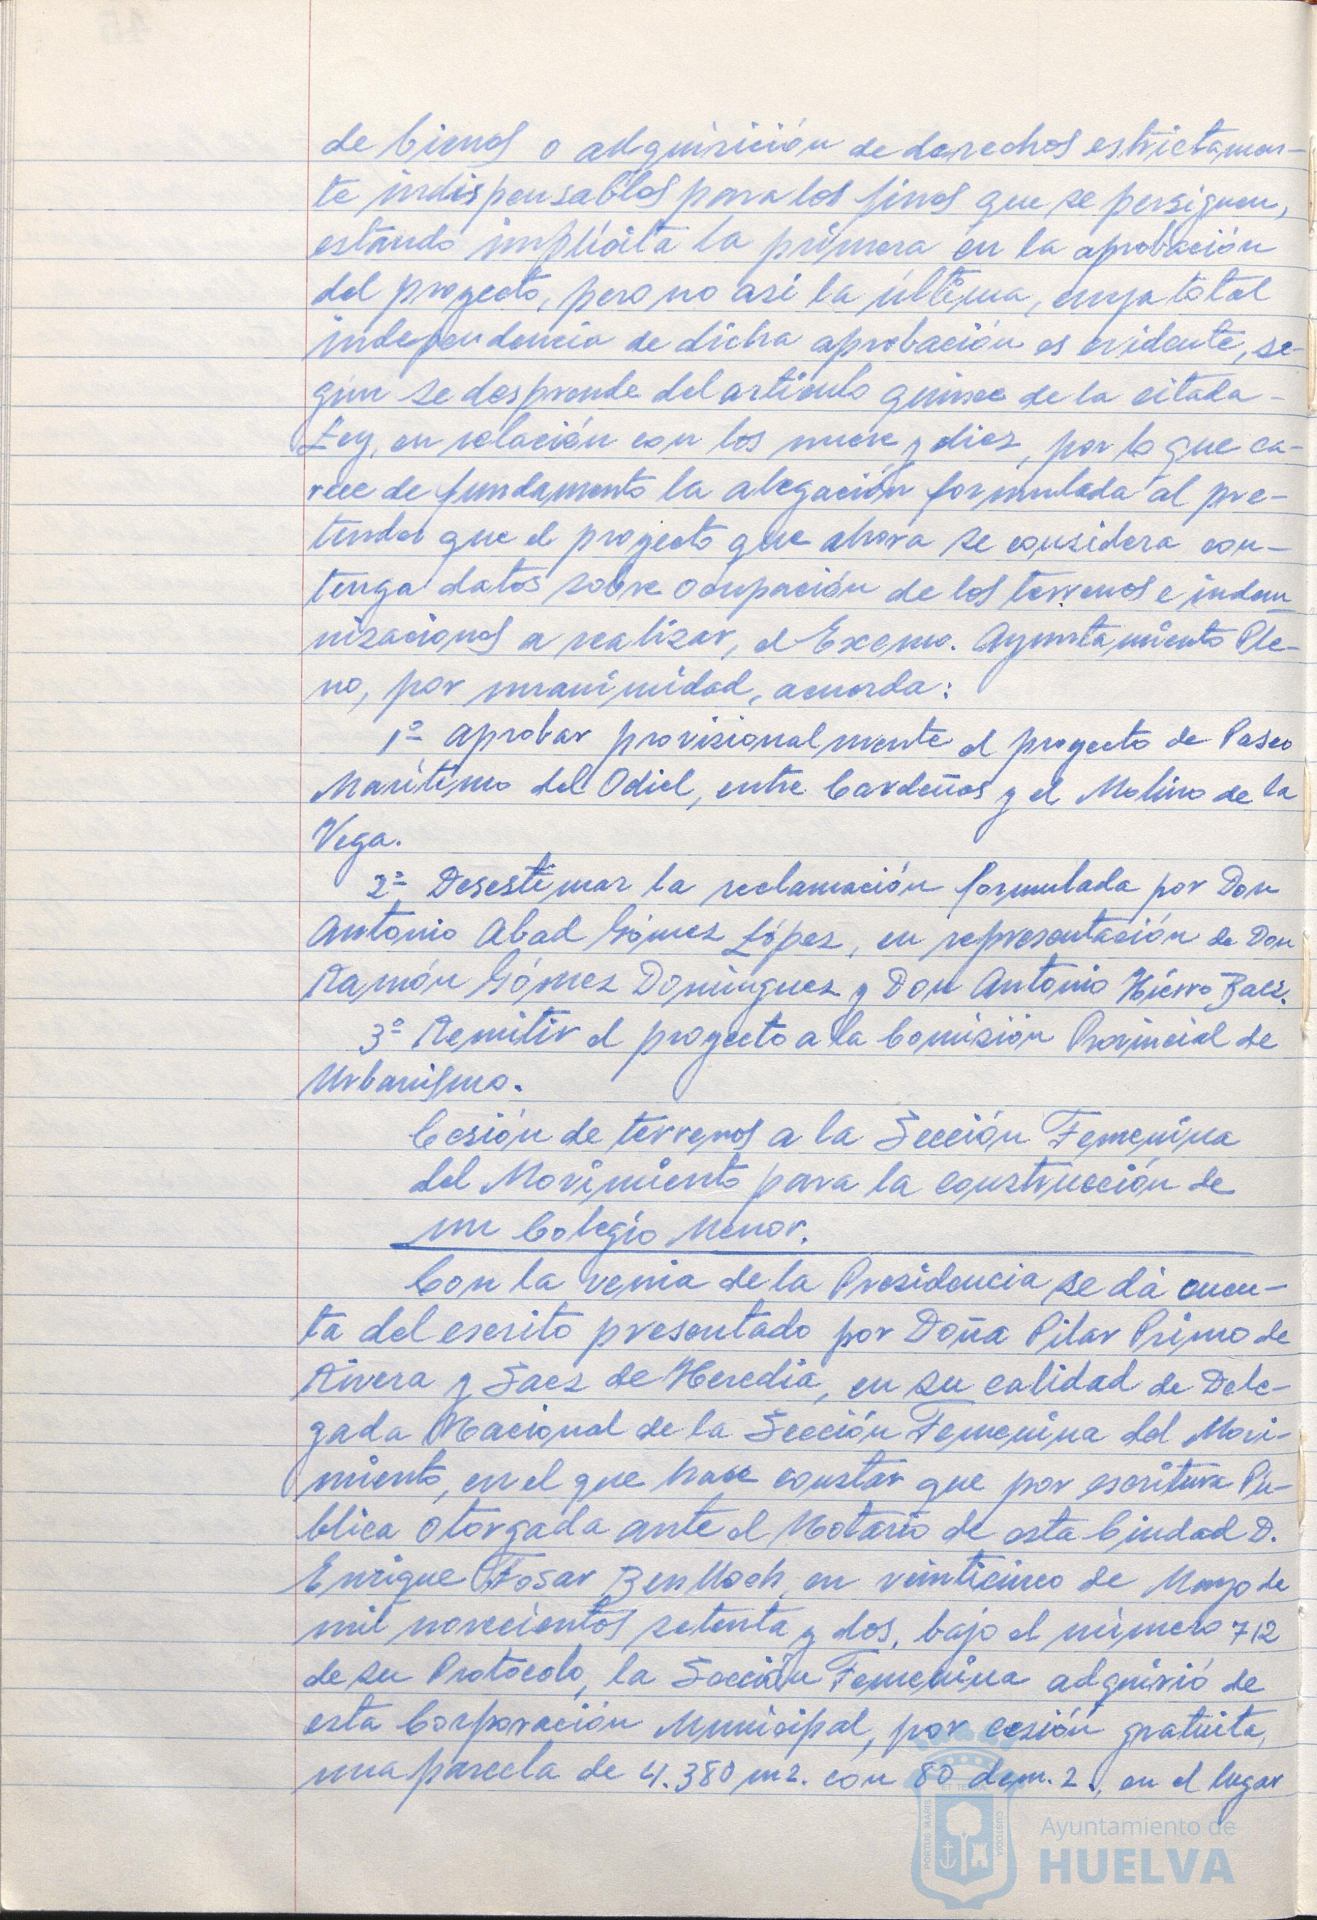 de bienes o adquisición de derechos estrictamen-
te indispensables para los fines que se persiguen,
estando implícita la primera en la aprobación
del proyecto, pero no así la última, cuya total
independencia de dicha aprobación es evidente, se-
gún se desprende del artículo quince de la citada-
Ley, en relación con los nueve y diez, por lo que ca-
rece de fundamento la alegación formulada al pre-
tender que el proyecto que ahora se considera con-
tenga datos sobre ocupación de los terrenos e indem
nizaciones a realizar, el Excmo. Ayuntamiento Ple-
no, por unanimidad, acuerda:
1º- Aprobar provisionalmente el proyecto de Paseo
Marítimo del Odiel, entre Cardeñas y el Molino de la
Vega.
2º- Desestimar la reclamación formulada por Don
Antonio Abad Gómez López, en representación de Don
Ramón Gómez Domínguez y Don Antonio Hierro Baez.
3º- Remitir el proyecto a la Comisión Provincial de
Urbanismo.
Cesión de terrenos a la Sección Femenina
del Movimiento para la construcción de
un Colegio Menor.
Con la venia de la Presidencia se dá cuen-
ta del escrito presentado por Doña Pilar Primo de
Rivera y Saez de Heredia, en su calidad de Dele-
gada Nacional de la Sección Femenina del Movi-
miento, en el que hace constar que por escritura Pú-
blica otorgada ante el Notario de esta Ciudad D.
Enrique Fosar Benlloch, en veinticinco de Mayo de
mil novecientos setenta y dos, bajo el número 712
de su Protocolo, la Sección Femenina adquirió de
esta Corporación Municipal, por cesión gratuita,
una parcela de 4.380 m2. con 80 dcm. 2., en el lugar
PORTUS MARIS ET TERRAE CUSTODIA
Ayuntamiento de
HUELVA